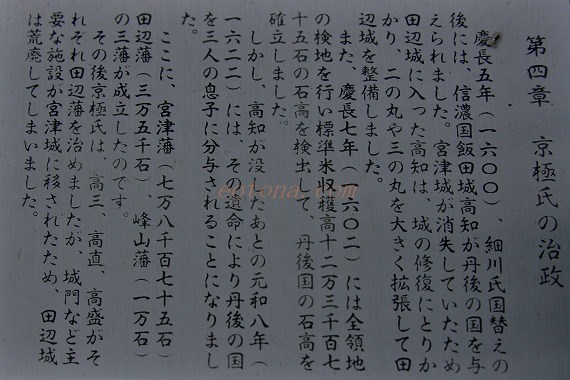 第四章　京極氏の治政
慶長五年（一六〇〇）　細川氏国替えの
後には、信濃国飯田城高知が丹後の国を与
えられました。宮津城が消失していたため
田辺城に入った高知は、城の修復にとりか
かり、二の丸や三の丸を大きく拡張して田
辺城を整備しました。
また、慶長七年（一六〇二）には全領地
の検地を行い標準米収穫高十二万三千百七
十五石の石高を検出して、丹後国の石高を
確立しました。
しかし、高知が没したあとの元和八年（
一六二二）には、その遺命により丹後の国
を三人の息子に分与されることになりまし
た。
ここに、宮津藩（七万八千百七十五石）
田辺藩（三万五千石）、峰山藩（一万石）
の三藩が成立したのです。
その後京極氏は、高三、高直、高盛がそ
れぞれ田辺藩を治めましたが、城門など主
要な施設が宮津城に移されたため、田辺城
は荒廃してしまいました。